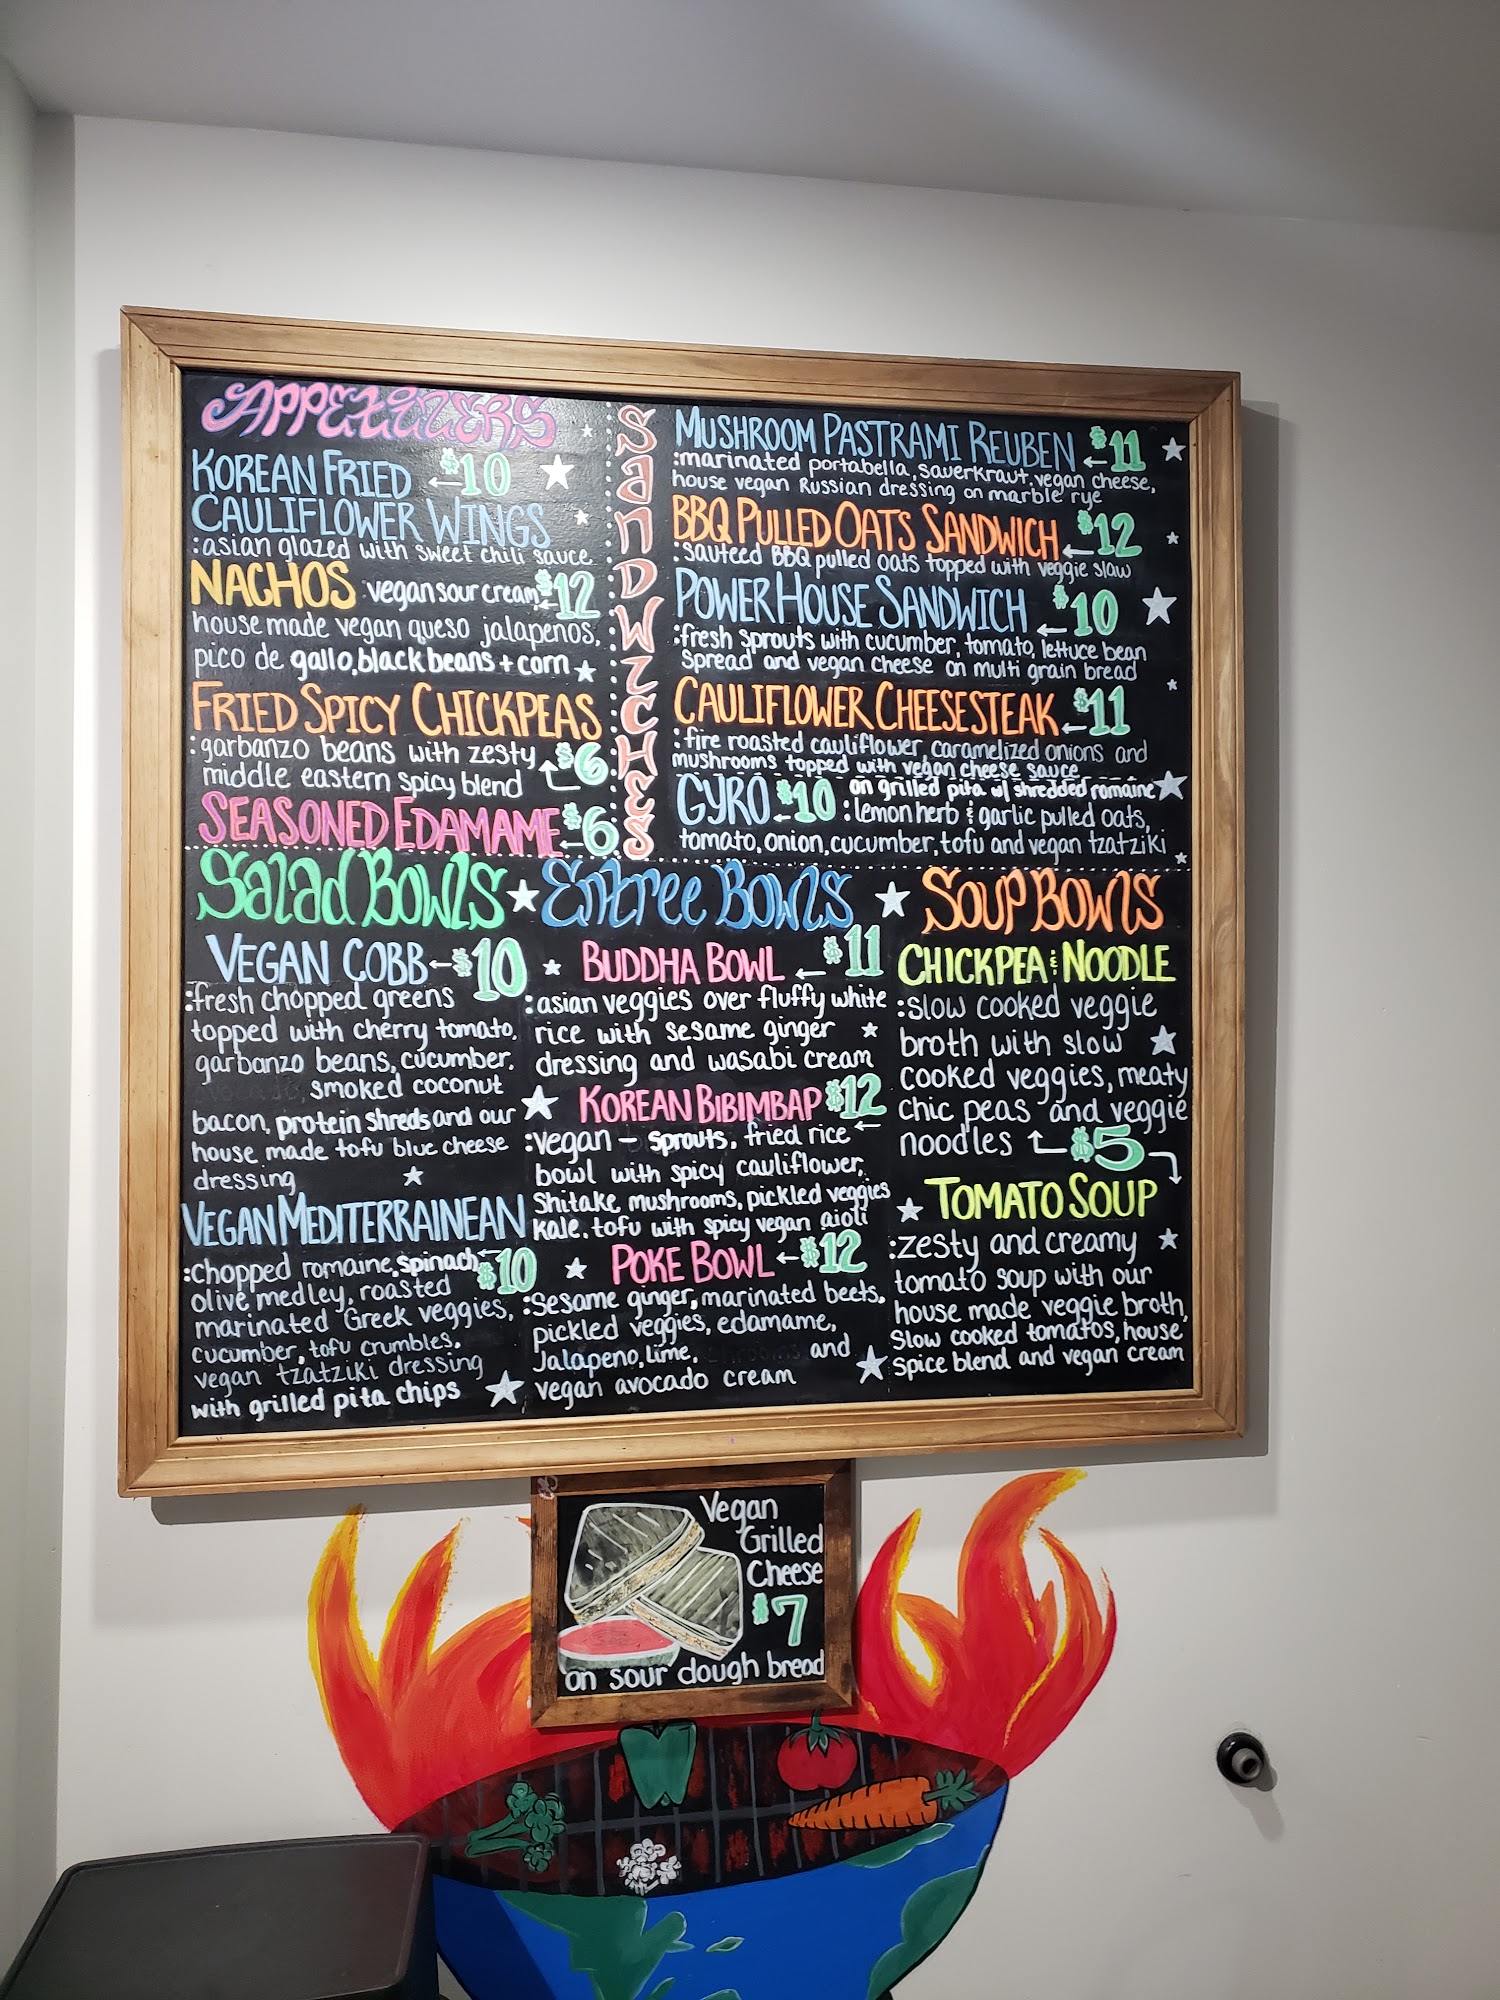 APPETIZERS
KOREAN FRIED $10
CAULIFLOWER WINGS
:asian glazed with sweet chili sauce
NACHOS vegan sour cream $12
house made vegan queso jalapenos,
pico de gallo, black beans + corn
FRIED SPICY CHICKPEAS
:garbanzo beans with zesty $6
middle eastern spicy blend
SEASONED EDAMAME $6
SANDWICHES
MUSHROOM PASTRAMI REUBEN $11
:marinated portabella, sauerkraut, vegan cheese,
house vegan Russian dressing on marble rye
BBQ PULLED OATS SANDWICH $12
:sauteed BBQ pulled oats topped with veggie slaw
POWER HOUSE SANDWICH $10
:fresh sprouts with cucumber, tomato, lettuce bean
spread and vegan cheese on multi grain bread
CAULIFLOWER CHEESESTEAK $11
:fire roasted cauliflower, caramelized onions and
mushrooms topped with vegan cheese sauce
on grilled pita w/ shredded romaine
GYRO $10 :lemon herb & garlic pulled oats,
tomato, onion, cucumber, tofu and vegan tzatziki
Salad Bowls
VEGAN COBB $10
:fresh chopped greens
topped with cherry tomato,
garbanzo beans, cucumber,
smoked coconut
bacon, protein shreds and our
house made tofu blue cheese
dressing
VEGAN MEDITERRAINEAN
:chopped romaine, spinach $10
olive medley, roasted
marinated Greek veggies,
cucumber, tofu crumbles,
vegan tzatziki dressing
with grilled pita chips
Entree Bowls
BUDDHA BOWL $11
:asian veggies over fluffy white
rice with sesame ginger
dressing and wasabi cream
KOREAN BIBIMBAP $12
:vegan - sprouts, fried rice
bowl with spicy cauliflower,
Shitake mushrooms, pickled veggies
kale, tofu with spicy vegan aioli
POKE BOWL $12
:Sesame ginger, marinated beets,
pickled veggies, edamame,
Jalapeno, lime, and
vegan avocado cream
SOUP BOWLS
CHICKPEA & NOODLE
:slow cooked veggie
broth with slow
cooked veggies, meaty
chic peas and veggie
noodles $5
TOMATO SOUP
:zesty and creamy
tomato soup with our
house made veggie broth,
Slow cooked tomatos, house
spice blend and vegan cream
Vegan
Grilled
Cheese
$7
on sour dough bread